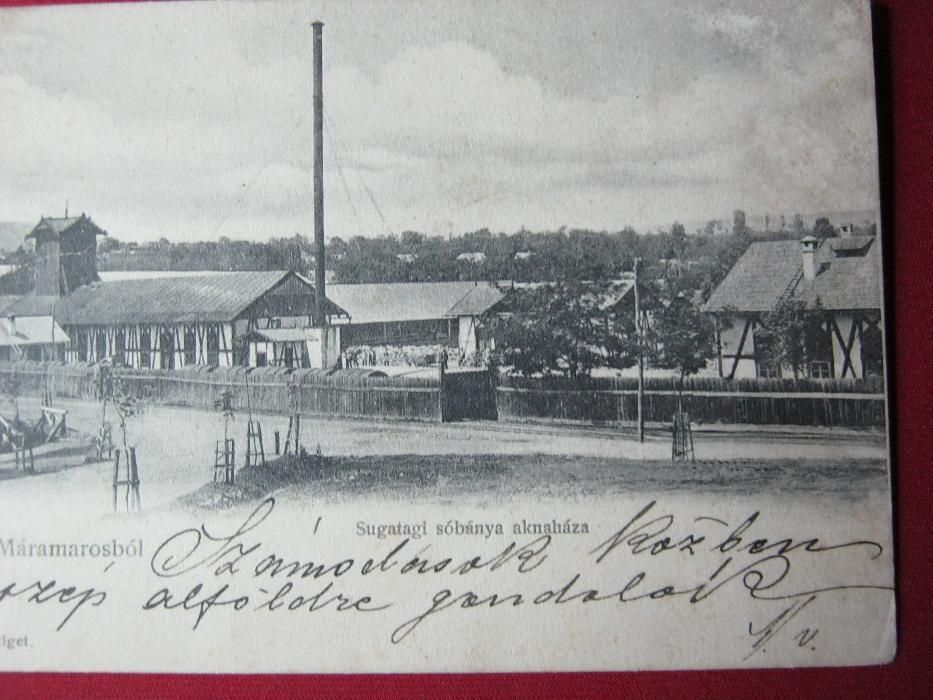 Sugatagi sóbánya aknaháza
Máramarosból
Számodások közben
szép alföldre gondolok
iget.